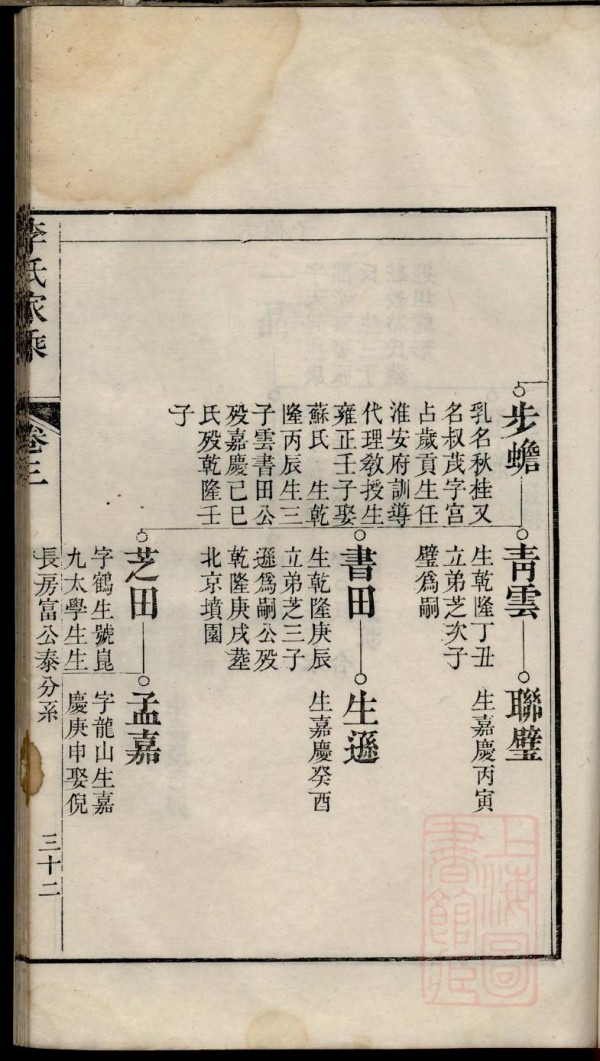 步蟾
乳名秋桂又
名叔茂字宮
占歲貢生任
淮安府訓導
代理教授生
雍正壬子娶
蘇氏　生乾
隆丙辰生三
子雲書田公
殁嘉慶己巳
氏殁乾隆壬
子
青雲
生乾隆丁丑
立弟芝次子
璧爲嗣
聯璧
生嘉慶丙寅
書田
生乾隆庚辰
立弟芝三子
遜爲嗣公殁
乾隆庚戌葬
北京墳園
生遜
生嘉慶癸酉
芝田
字鶴生號崑
九太學生生
孟嘉
字龍山生嘉
慶庚申娶倪
長房富公泰分系
三十二
李氏家乘
卷三
上海圖
書館藏